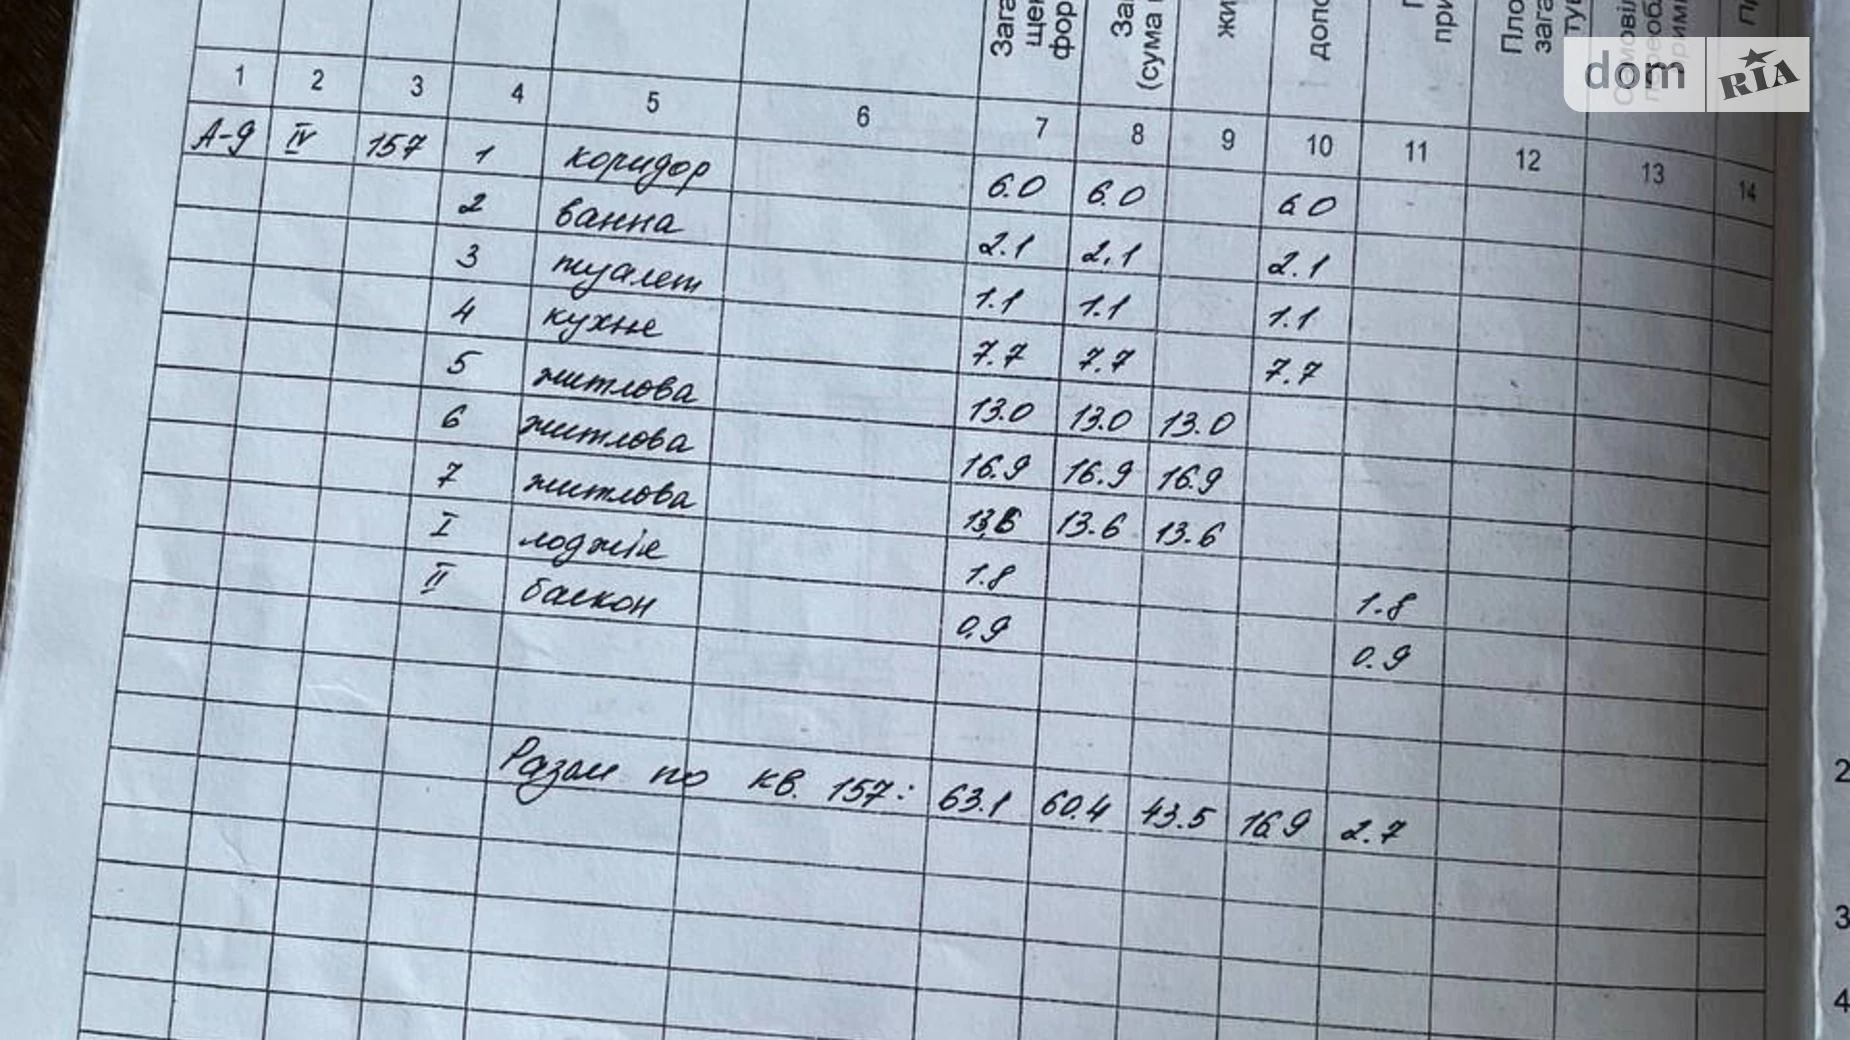 Зага
щен
фор
За
(сума
жи
допо
при
Пло
зага
dom RIA
1 2 3 4 5 6 7 8 9 10 11 12 13 14
А-9 IV 157 1 коридор 6.0 6.0 6.0
2 ванна 2.1 2.1 2.1
3 туалет 1.1 1.1 1.1
4 кухне 7.7 7.7 7.7
5 житлова 13.0 13.0 13.0
6 житлова 16.9 16.9 16.9
7 житлова 13.6 13.6 13.6
I лоджіє 1.8 1.8
II балкон 0.9 0.9
Разом по кв. 157: 63.1 60.4 43.5 16.9 2.7
2
3
4